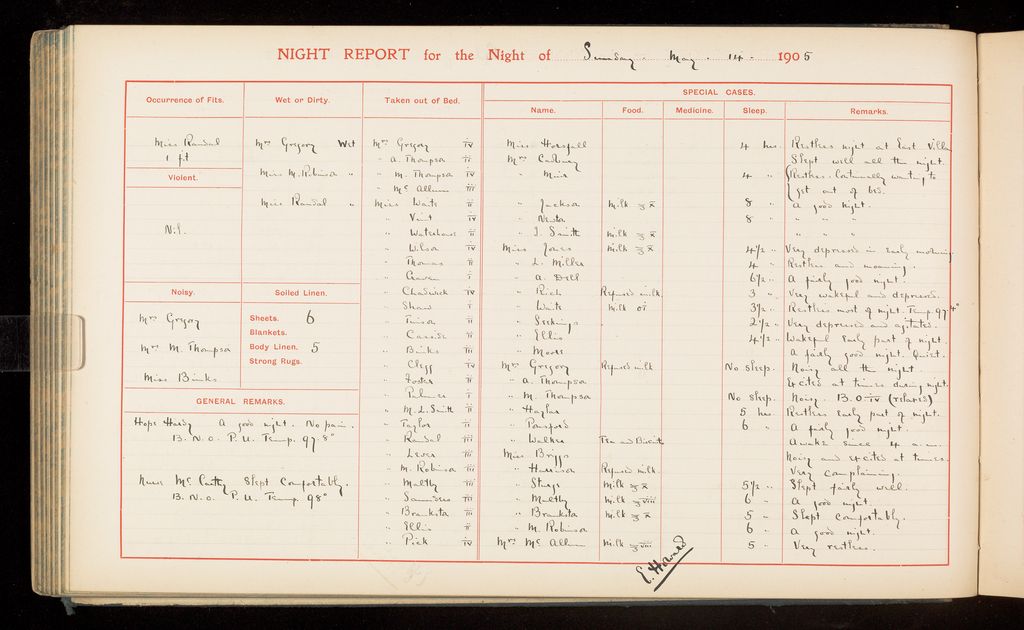 NIGHT REPORT for the Night of Sunday May 14 1905
Occurrence of Fits.
Miss Randal
1 fit
Violent.
Nil.
Noisy.
Mrs Gregory
Mrs M. Thompson
Miss Binks
Wet or Dirty.
Mrs Gregory Wet
Miss M. Robinson "
Miss Randal "
Soiled Linen.
Sheets. 6
Blankets.
Body Linen. 5
Strong Rugs.
GENERAL REMARKS.
Hope Hardy A good night. No pain.
B. N. O. P. U. Temp. 97.8°
Nurse McCarthy Slept Comfortably.
B. N. O. P. U. Temp. 98°
Taken out of Bed.
Mrs Gregory iv
" A. Thompson ii
" M. Thompson iv
" McAllum iii
Miss Waite ii
" Vint iv
" Waterhouse ii
" Wilson iv
" Thomas ii
" Craven i
" Chadwick iv
" Shaw i
" Tuison ii
" Cassidi ii
" Binks iii
" Clegg iv
" Foster ii
" Palmer i
" M. L. Smith ii
" Taylor ii
" Randal iii
" Lever iii
" M. Robinson iii
" Maltby iii
" Saunders iii
" Brankston iii
" Ellis ii
" Pick iv
SPECIAL CASES.
Name. Food. Medicine. Sleep. Remarks.
Miss Horsfall 4 hrs. Restless night at East Villa
Mrs Slept well all the night.
" Muir 4 " Restless. Continually wanting to
get out of bed.
" Jackson Milk ℥x 8 " A good night.
" Newton 8 " " " "
" J. Smith Milk ℥x " " "
Miss Jones Milk ℥x 4½ " Very depressed in early morning
" L. Miller 4 " Restless and moaning.
" A. Dell 6½ " A fairly good night.
" Rich Refused milk. 3 " Very wakeful and depressed.
" Waite Milk Oi 3½ " Restless most of night. Temp. 97.4°
" 2½ " Very depressed and agitated.
" Ellis 4½ " Wakeful Early part of night.
" Moore A fairly good night. Quiet.
Mrs Gregory Refused milk No sleep. Noisy all the night.
" A. Thompson Excited at times during night.
" M. Thompson No sleep. Noisy. B.O. iv (relaxed)
" Haylar 5 hrs Restless Early part of night.
" Pansford 6 " A fairly good night.
" Walker Tea and Biscuits Awake since 4 a.m.
Miss Briggs Noisy and excited at times.
" Harrison Refused milk. Very complaining.
" Sturge Milk ℥x 5½ " Slept fairly well.
" Maltby Milk ℥viii 6 " A good night.
" Brankston Milk ℥x 5 " Slept comfortably.
" M. Robinson 6 " A good night.
Mrs McAllum Milk ℥viii 5 " Very restless.
E. Howard